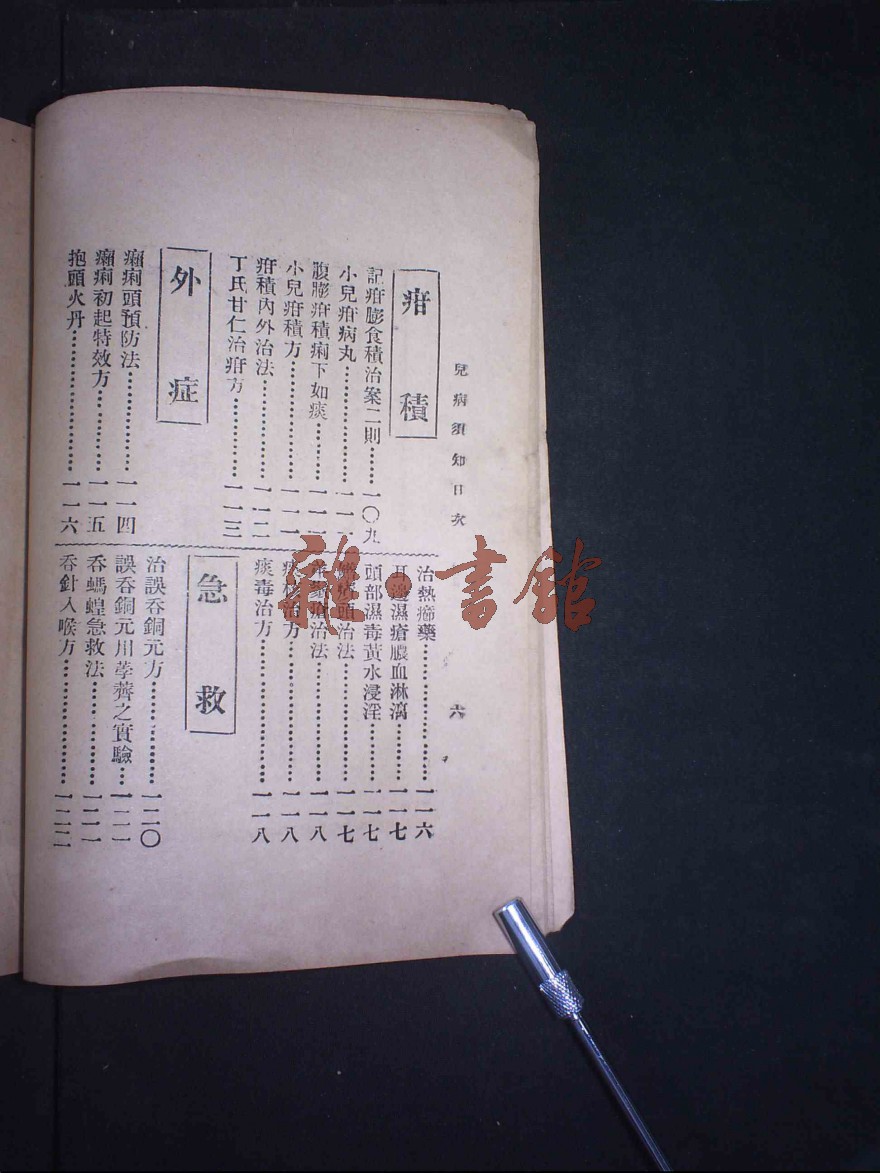 兒病須知目次
六
疳積
記疳膨食積治案二則……一〇九
小兒疳病丸……一一一
腹膨疳積痢下如痰……一一一
小兒疳積方……一一一
疳積內外治法……一一二
丁氏甘仁治疳方……一一三
外症
瘌痢頭預防法……一一四
瘌痢初起特效方……一一五
抱頭火丹……一一六
治熱癤藥……一一六
耳邊濕瘡膿血淋漓……一一七
頭部濕毒黃水浸淫……一一七
頭治法……一一七
瘡治法……一一八
治方……一一八
痰毒治方……一一八
急救
治誤吞銅元方……一二〇
誤吞銅元用荸薺之實驗…一二一
吞螞蝗急救法……一二一
吞針入喉方……一二二
雜·書館